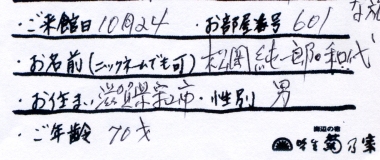 ・ご来館日 10月24 ・お部屋番号 601
・お名前(ニックネームでも可) 松岡 純一郎・和代
・お住まい 滋賀県 市・性別 男
・ご年齢 70才
海辺の宿